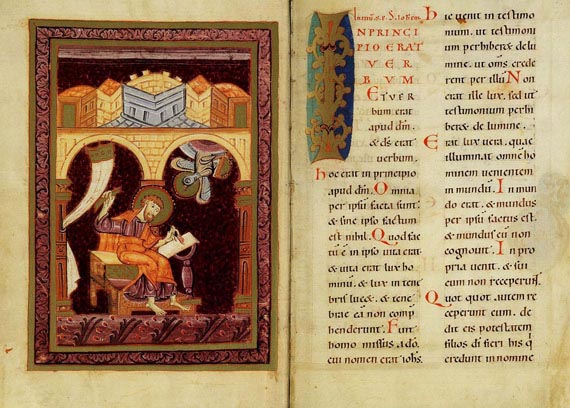 IN PRINCI
PIO ERAT
VER
BUM
ET VER
bum erat
apud dm̄.
& d̄s erat
verbum.
hoc erat in principio
apud dm̄. Omnia
per ipsū facta sunt.
& sine ipso factum
est nihil. Quod fac
tū ē in ipso vita erat.
& vita erat lux ho
minū. & lux in tene
bris lucet. & tene
brae eā non compre
henderunt. Fuit
homo missus a dō.
cui nomen erat iohs̄.
hic venit in testimo
nium. ut testimoni
um perhiberet de lu
mine. ut om̄s crede
rent per illū. Non
erat ille lux. sed ut
testimonium perhi
beret de lumine.
Erat lux vera. quae
illuminat omnē ho
minem venientem
in mundū. In mun
do erat. & mundus
per ipsū factus est.
& mundus eū non
cognouit. In pro
pria venit. & sui
eum non receperunt.
Quot quot autem re
ceperunt eum. de
dit eis potestatem
filios dī fieri his q̄
credunt in nomine